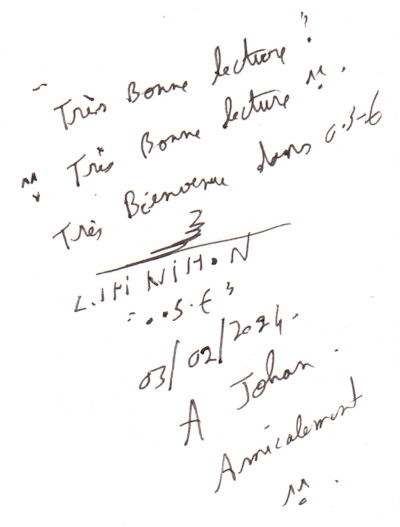 Très Bonne lecture !
Très Bonne lecture
Très Bienvenue dans 0.3-6
L.IHI NIHON
03/02/2024.
A Johan.
Amicalement